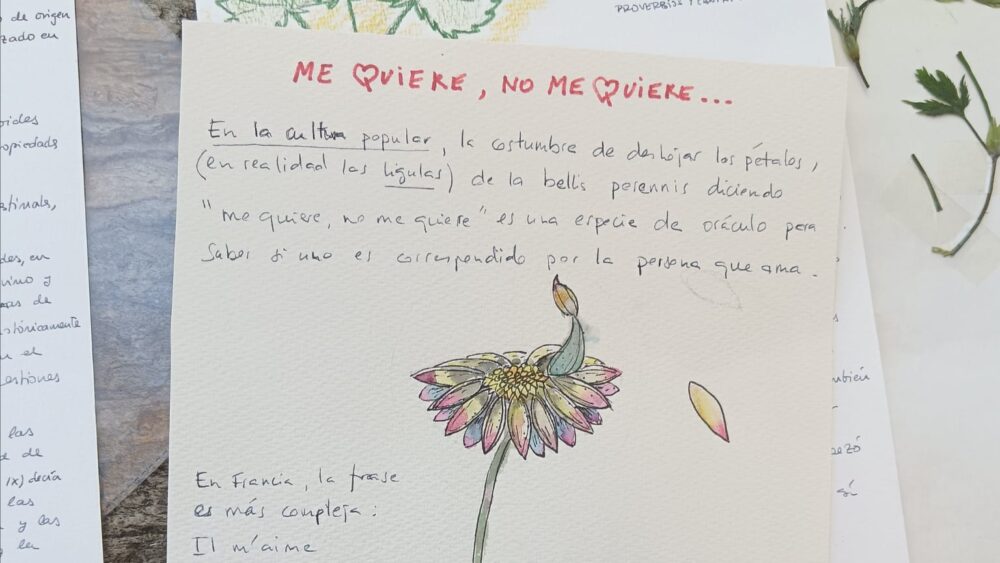 de origen
zado en
oides
opiedads
stinals,
des, en
vino y
as de
stóricamente
n el
estiones
las
de
IX) decía
las
y las
la
PROVERBIOS Y
ME QUIERE, NO ME QUIERE...
En la cultura popular, la costumbre de deshojar los pétalos,
(en realidad las lígulas) de la bellis perennis diciendo
"me quiere, no me quiere" es una especie de oráculo para
saber si uno es correspondido por la persona que ama.
En Francia, la frase
es más compleja:
Il m'aime
mbién
ezó
sí